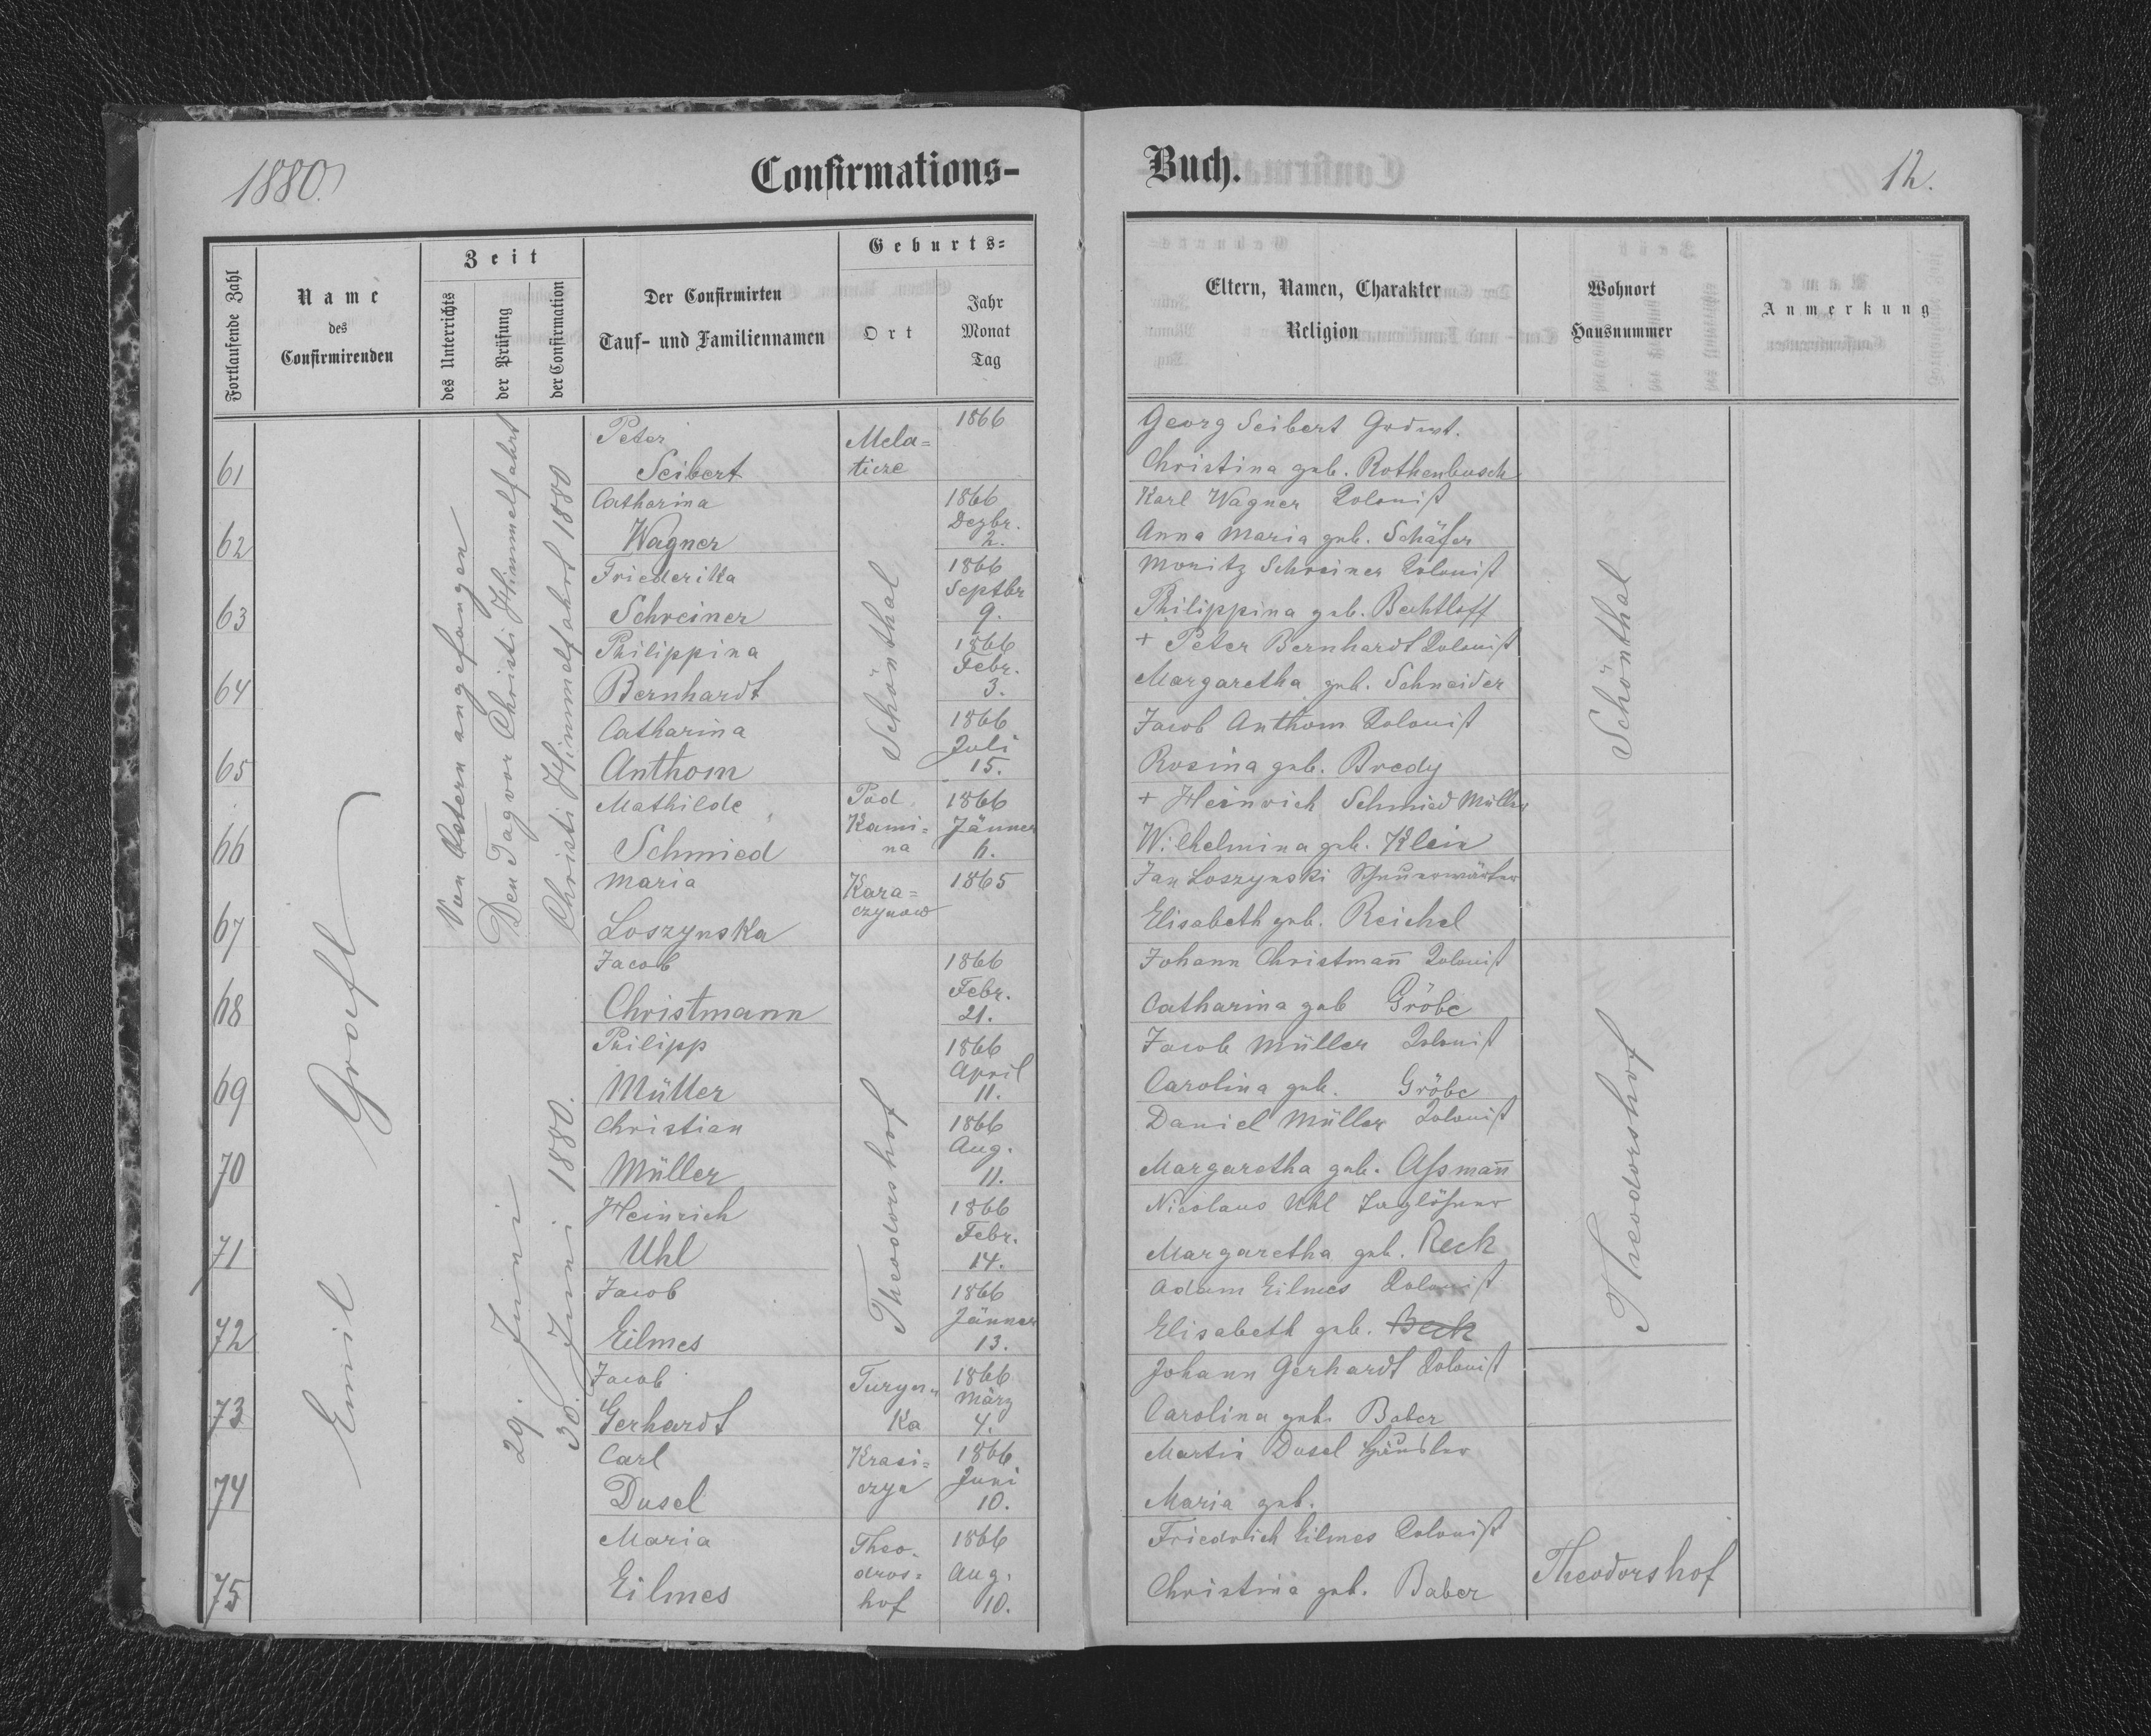 1880.
Confirmations-
Buch.
12.
Fortlaufende Zahl
Name
des
Confirmirenden
Zeit
des Unterrichts
der Prüfung
der Confirmation
Der Confirmirten
Tauf- und Familiennamen
Geburts-
Ort
Jahr
Monat
Tag
Eltern, Namen, Charakter
Religion
Wohnort
Hausnummer
Anmerkung
Emil Graft
Von Ostern angefangen
Den Tag vor Christi Himmelfahrt
Christi Himmelfahrt 1880
29. Juni
30. Juni 1880.
Schönthal
Theodorshof
Schönthal
Theodorshof
61
Peter
Seibert
Mela-
ticze
1866
Georg Seibert
Christina geb. Rothenbusch
62
Catharina
Wagner
1866
Dezbr.
2.
Karl Wagner Colonist
Anna Maria geb. Schäfer
63
Friederika
Schreiner
1866
Septbr
9.
Moritz Schreiner Colonist
Philippina geb. Bechtloff
64
Philippina
Bernhardt
1866
Febr.
3.
+ Peter Bernhardt Colonist
Margaretha geb. Schneider
65
Catharina
Anthom
1866
Juli
15.
Jacob Anthom Colonist
Rosina geb. Bredy
66
Mathilde
Schmied
Pod
Kami-
na
1866
Jänner
6.
+ Heinrich Schmied Müller
Wilhelmina geb. Klein
67
Maria
Loszynska
Kara-
czynow
1865
Jan Loszynski
Elisabeth geb. Reichel
68
Jacob
Christmann
1866
Febr.
21.
Johann Christman̄ Colonist
Catharina geb Gröbe
69
Philipp
Müller
1866
April
11.
Jacob Müller Colonist
Carolina geb. Gröbe
70
Christian
Müller
1866
Aug.
11.
Daniel Müller Colonist
Margaretha geb. Aſsman̄
71
Heinrich
Uhl
1866
Febr.
14.
Nicolaus Uhl Taglöhner
Margaretha geb. Reck
72
Jacob
Eilmes
1866
Jänner
13.
Adam Eilmes Colonist
Elisabeth geb. Beck
73
Jacob
Gerhardt
Turyn-
ka
1866
März
4.
Johann Gerhardt Colonist
Carolina geb. Baber
74
Carl
Dusel
Krasi-
czyn
1866
Juni
10.
Martin Dusel Häusler
Maria geb.
75
Maria
Eilmes
Theo-
dros-
hof
1866
Aug.
10.
Friedrich Eilmes Colonist
Christina geb. Baber
Theodorshof